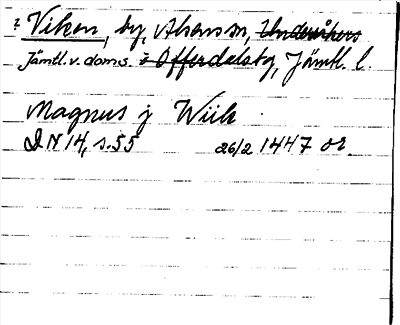 ? Viken, by, Alsens sn, Undersåkers
Jämtl. v. doms. i Offerdalstg, Jämtl. l.
Magnus j Wiik
DN 14, s. 55 26/2 1447 or.